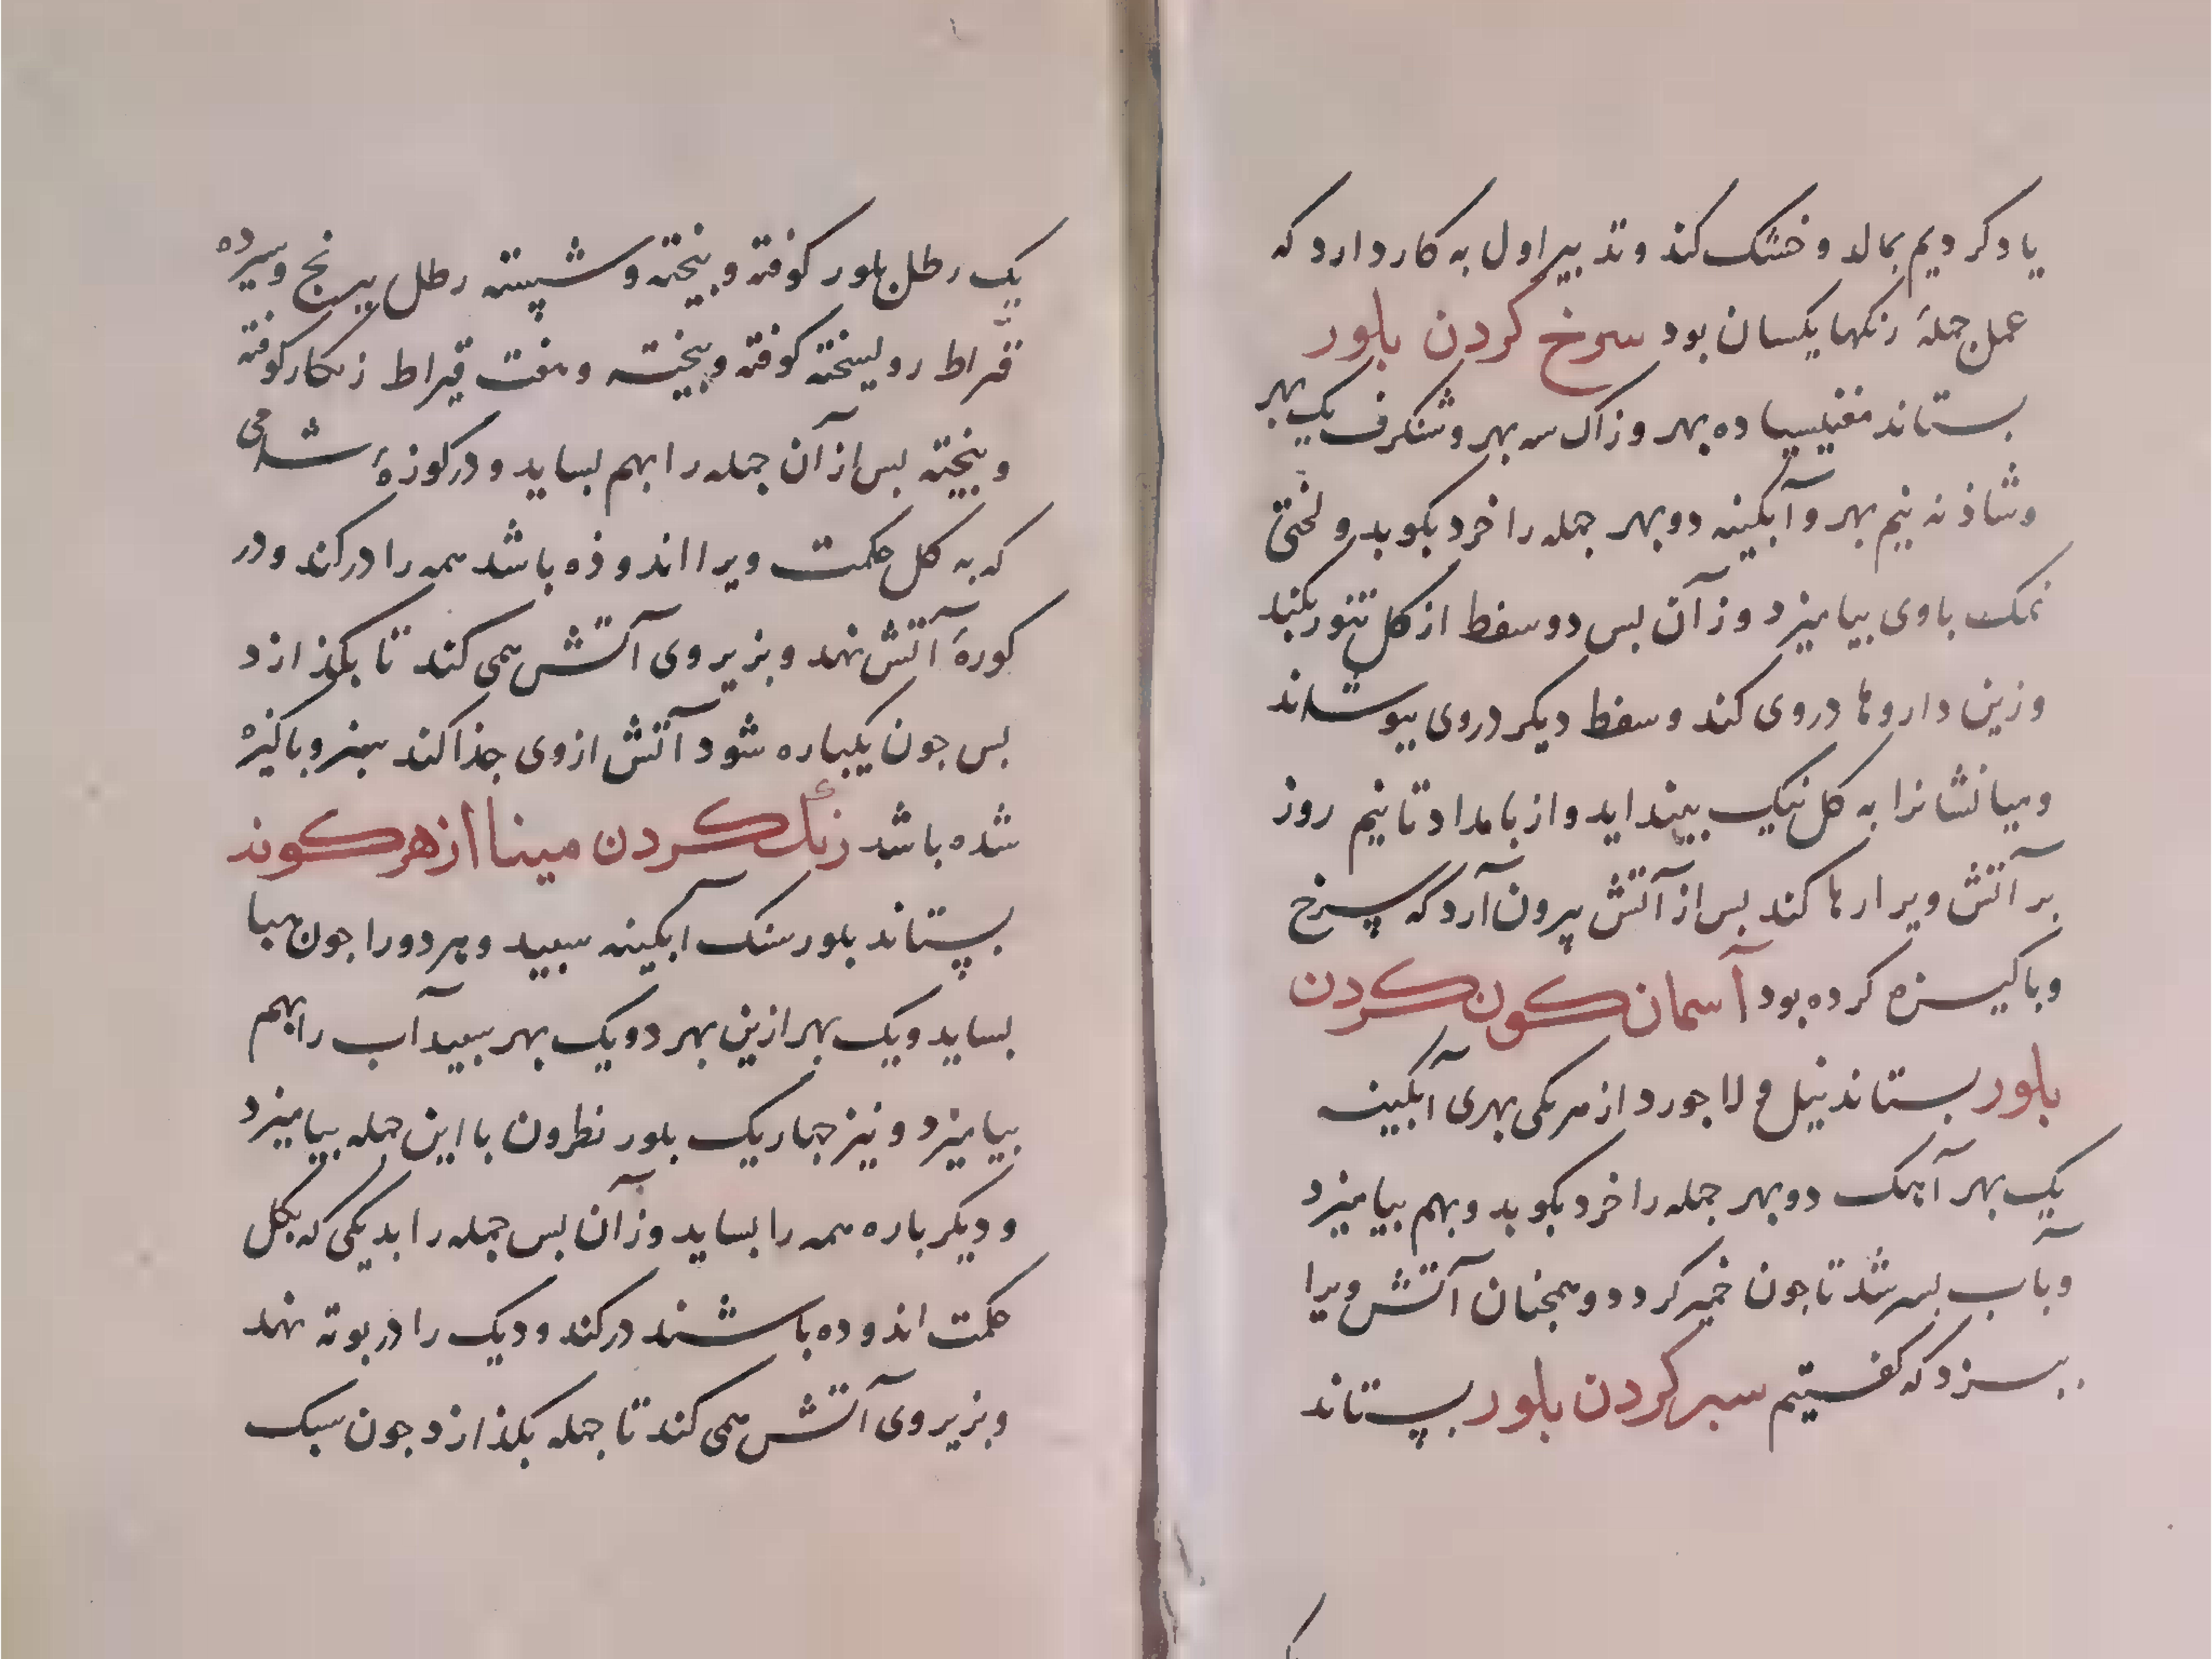 یاد کردیم بمالد و خشک کند و تدبیر اول به کار دارد که
عمل جملهٔ رنکها یکسان بود سرخ کردن بلور
بستاند مغنیسیا ده بهر و زاک سه بهر و شنکرف یک بهر
و شاذنه نیم بهر و آبکینه دو بهر جمله را خرد بکوبد و لختی
نمک باوی بیامیزد وز آن بس دو سفط از کل تنور بکند
وزین داروها در وی کند و سفط دیکر در وی بیوشاند
و میانشانرا به کل نیک بینداید و از بامداد تا نیم روز
بر آتش ویرا رها کند بس از آتش بیرون آرد که سرخ
و باکیزه کرده بود آسمان کون کردن
بلور بستاند نیل و لاجورد از هر یکی بهری آبکینه
یک بهر آهک دو بهر جمله را خرد بکوبد و بهم بیامیزد
و بآب بسرشد تا جون خمیر کردد و همجنان آتش ویرا
ببسزد که کفتیم سبز کردن بلور بستاند
یک رطل بلور کوفته و بیخته و شسته رطل برنج و سیزده
قیراط روسخته کوفته و بیخته و هفت قیراط زنکار کوفته
و بیخته بس از آن جمله را بهم بساید و در کوزهٔ شامی
که به کل حکمت ویرا اندوذه باشد همه را در کند و در
کورهٔ آتش نهد و بزیر وی آتش همی کند تا بکذازد
بس جون یکباره شود آتش از وی جذا کند سبز و باکیزه
شده باشد رنک کردن مینا از هر کونه
بستاند بلور سنک آبکینه سبید و هر دو را جون هبا
بساید و یک بهر ازین بهر دو یک بهر سبیدآب را بهم
بیامیزد و نیز جهار یک بلور نطرون با این جمله بیامیزد
و دیکر باره همه را بساید وز آن بس جمله را بدیکی که بکل
حکمت اندوده باشند در کند و دیک را در بوته نهد
و بزیر وی آتش همی کند تا جمله بکذازد جون سبک